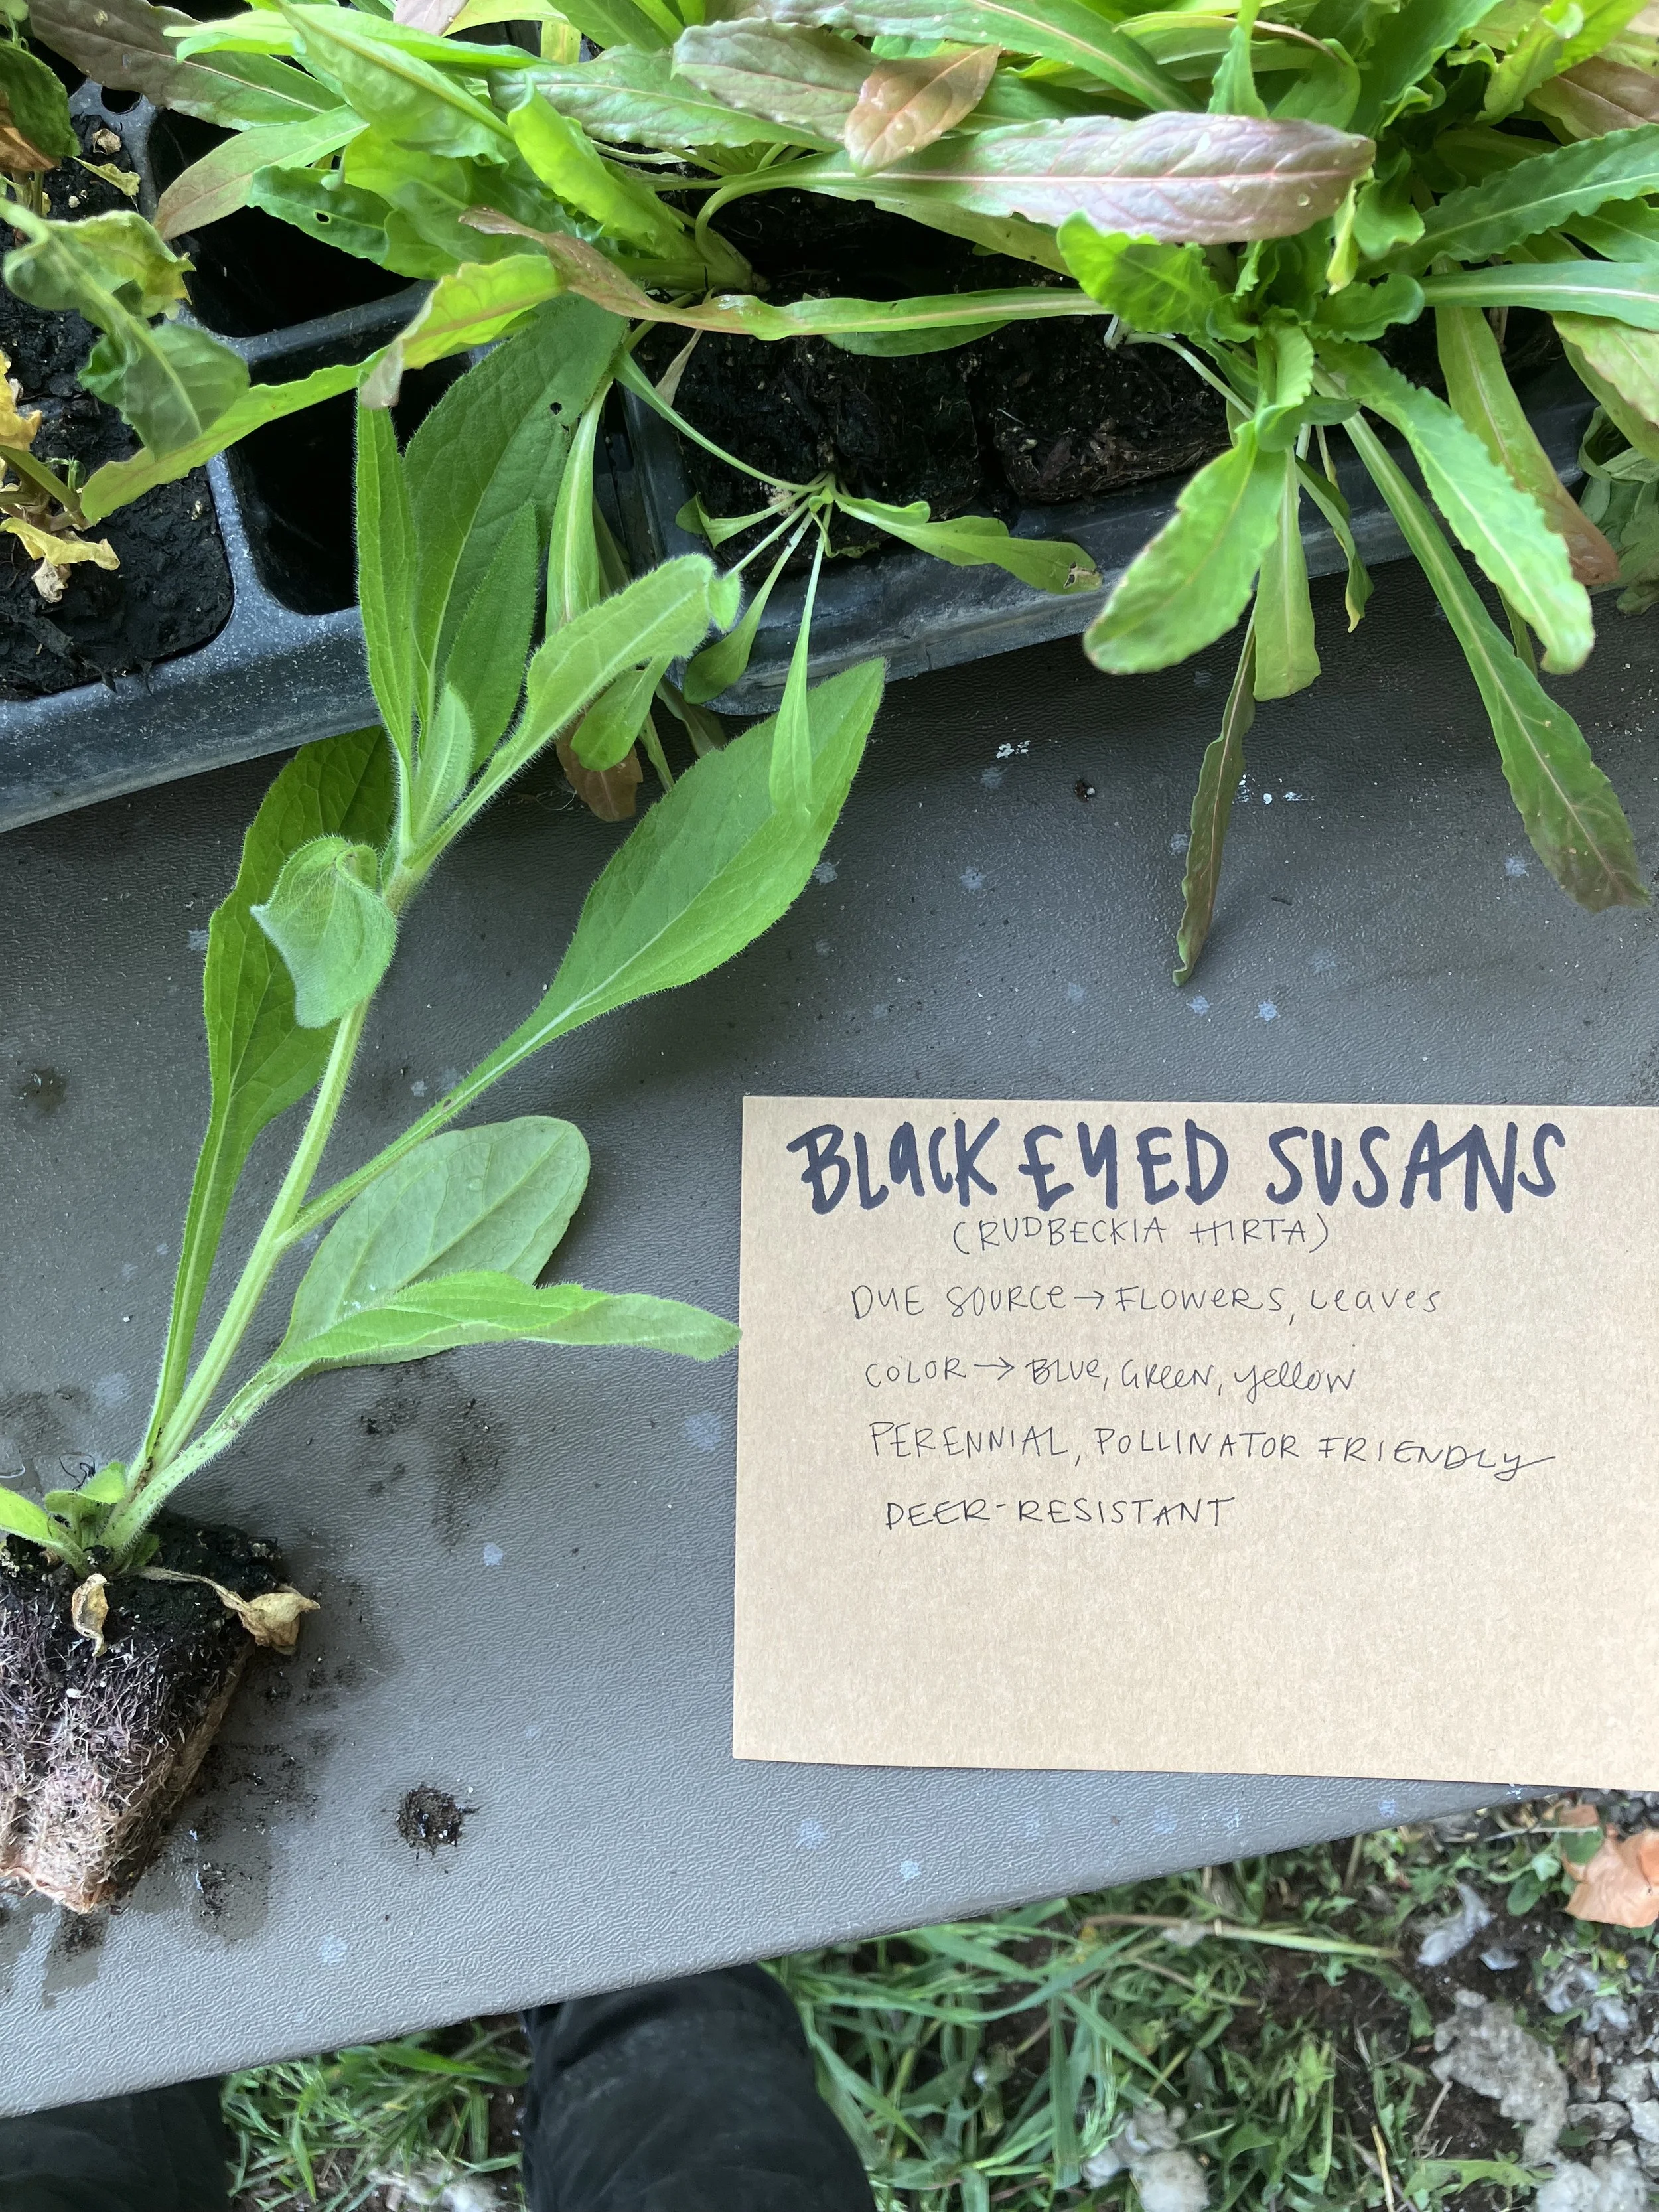 BLACK EYED SUSANS
(RUDBECKIA HIRTA)
DYE SOURCE → FLOWERS, Leaves
COLOR → BLUE, GREEN, yellow
PERENNIAL, POLLINATOR FRIENDLY
DEER-RESISTANT